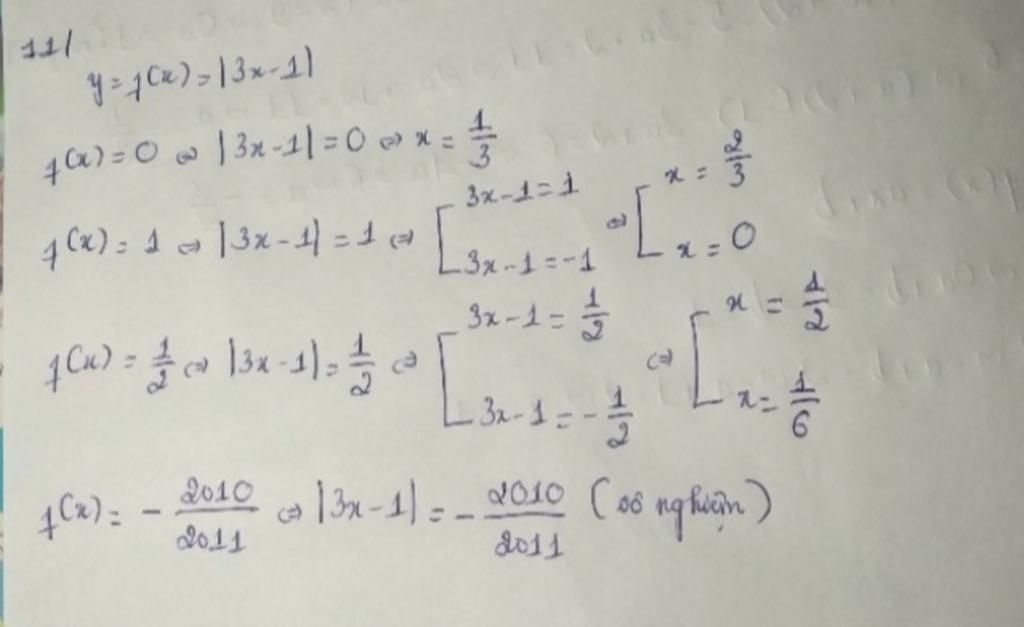 11/
y = f(x) = |3x-1|
f(x) = 0 ⇔ |3x-1| = 0 ⇔ x = 1/3
f(x) = 1 ⇔ |3x-1| = 1 ⇔ [ 3x-1 = 1 ; 3x-1 = -1 ⇔ [ x = 2/3 ; x = 0
f(x) = 1/2 ⇔ |3x-1| = 1/2 ⇔ [ 3x-1 = 1/2 ; 3x-1 = -1/2 ⇔ [ x = 1/2 ; x = 1/6
f(x) = - 2010/2011 ⇔ |3x-1| = - 2010/2011 (vô nghiệm)